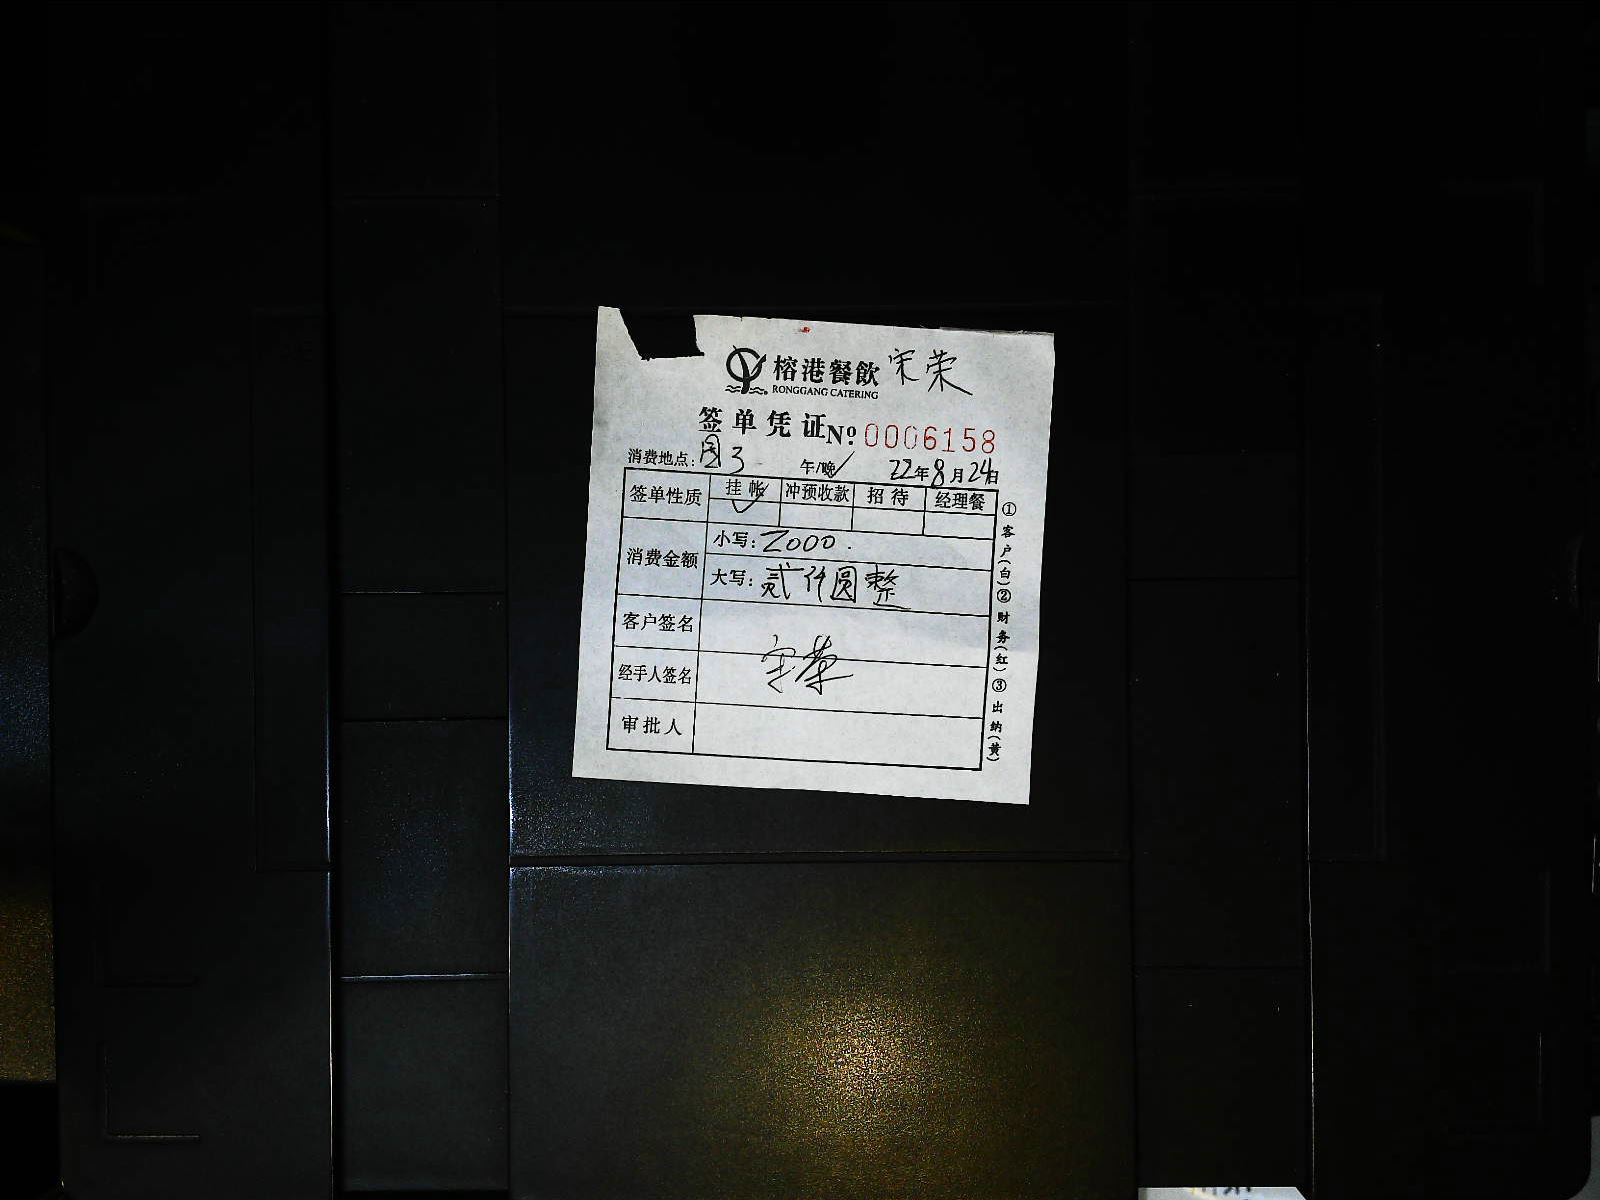 榕港餐飲 宋荣
RONGGANG CATERING
签单凭证 No 0006158
消费地点: 周3 午/晚✓ 22年8月24日
签单性质 挂帐 冲预收款 招待 经理餐
✓
消费金额 小写: 2000.
大写: 贰仟圆整
客户签名
经手人签名 宋荣
审批人
①客户(白)②财务(红)③出纳(黄)